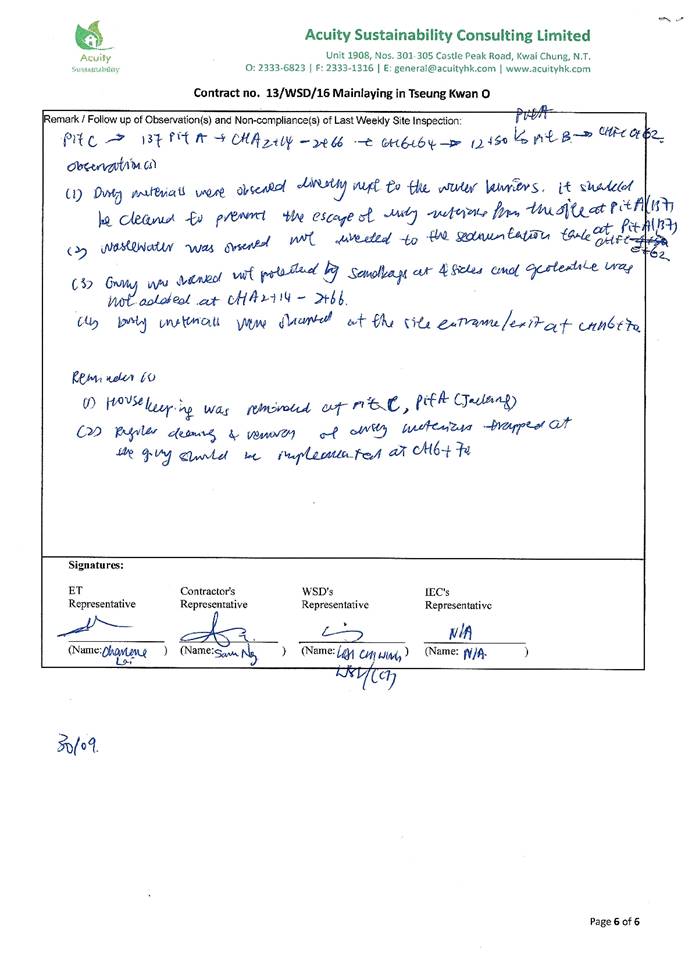 Acuity Sustainability Consulting Limited
Acuity
Sustainability
Unit 1908, Nos. 301-305 Castle Peak Road, Kwai Chung, N.T.
O: 2333-6823 | F: 2333-1316 | E: general@acuityhk.com | www.acuityhk.com
Contract no. 13/WSD/16 Mainlaying in Tseung Kwan O
Remark / Follow up of Observation(s) and Non-compliance(s) of Last Weekly Site Inspection:
Pit A
Pit C → 137 Pit A → CHA2+14 - 2+66 → CH6+64 → 12+50 Pit B → CHFC 0+62
Observation(s)
(1) Dusty materials were observed directly next to the water barriers. it should
be cleaned to prevent the escape of dusty materials from the site at Pit A(137)
(2) wastewater was observed not directed to the sedimentation tank at Pit A(137)
0+62
(3) Gully was observed not protected by sandbags at 4 sides and geotextile was
not added at CHA2+14 - 2+66.
(4) Dusty materials were observed at the site entrance/exit at CHH6+72
Reminder(s)
(1) Housekeeping was reminded at Pit C, Pit A (Jacking)
(2) Regular cleaning & removal of dusty materials trapped at
the gully should be implemented at CH6+72
Signatures:
ET Contractor's WSD's IEC's
Representative Representative Representative Representative
N/A
(Name: Lai ) (Name: Sam Ng ) (Name: ) (Name: N/A. )
30/09.
Page 6 of 6